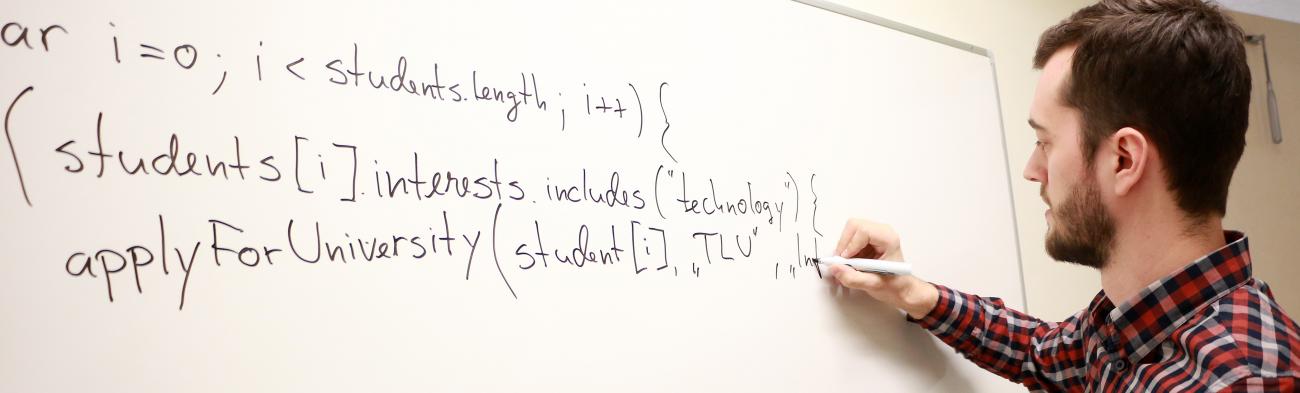 ar i=0; i < students.length; i++) {
(students[i].interests.includes("technology") {
applyForUniversity(student[i], „TLU", „Inf